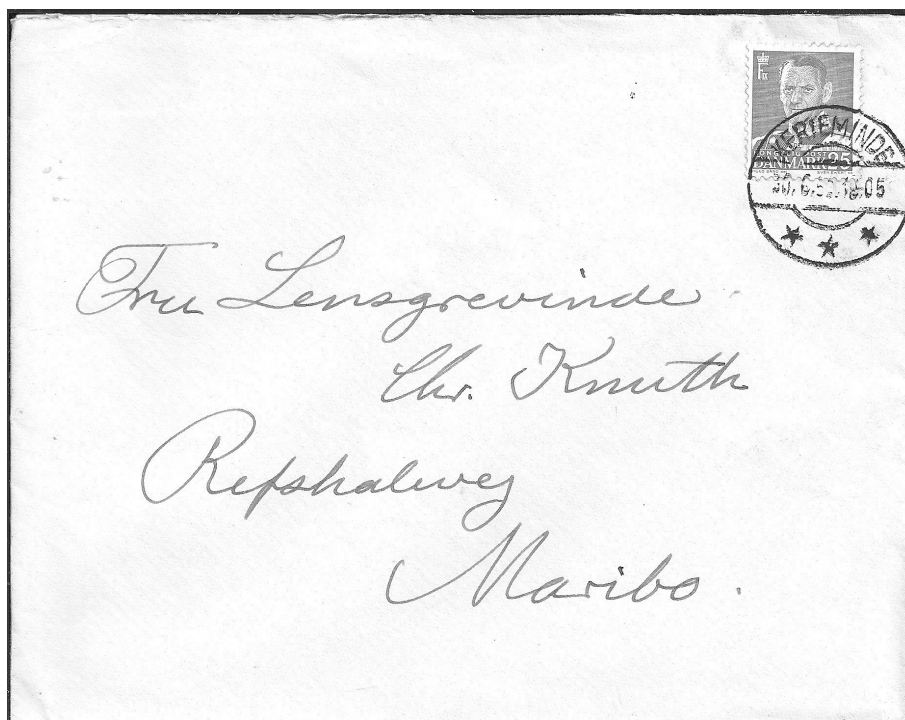 F IX
KERTEMINDE
DANMARK 25
Fru Lensgrevinde
Chr. Knuth
Refshalevej
Maribo.